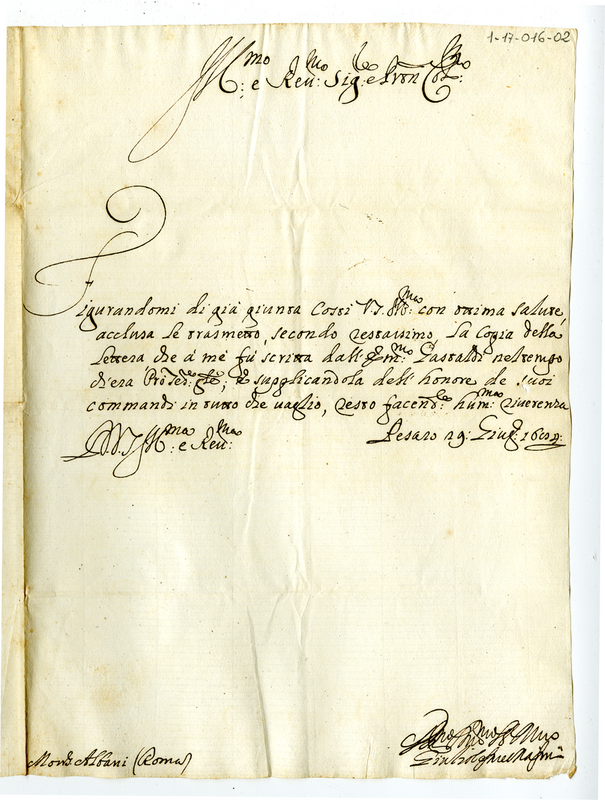 1-17-016-02
Ill:mo e Rev:mo Sig:re e Pron Col:mo
Figurandomi di già giunta Costì V.S. Ill:ma con ottima salute,
acclusa le trasmetto, secondo restassimo, la Copia della
lettera che à me fù scritta dall' Em:mo Gastaldi nel tempo
ch'era ; e supplicandola dell' honore de suoi
commandi in tutto che vaglio, resto facend:le hum:ma riverenza
D V.S. Ill:ma e Rev:ma
Pesaro 29: Giug:
Mons: Albani (Roma)